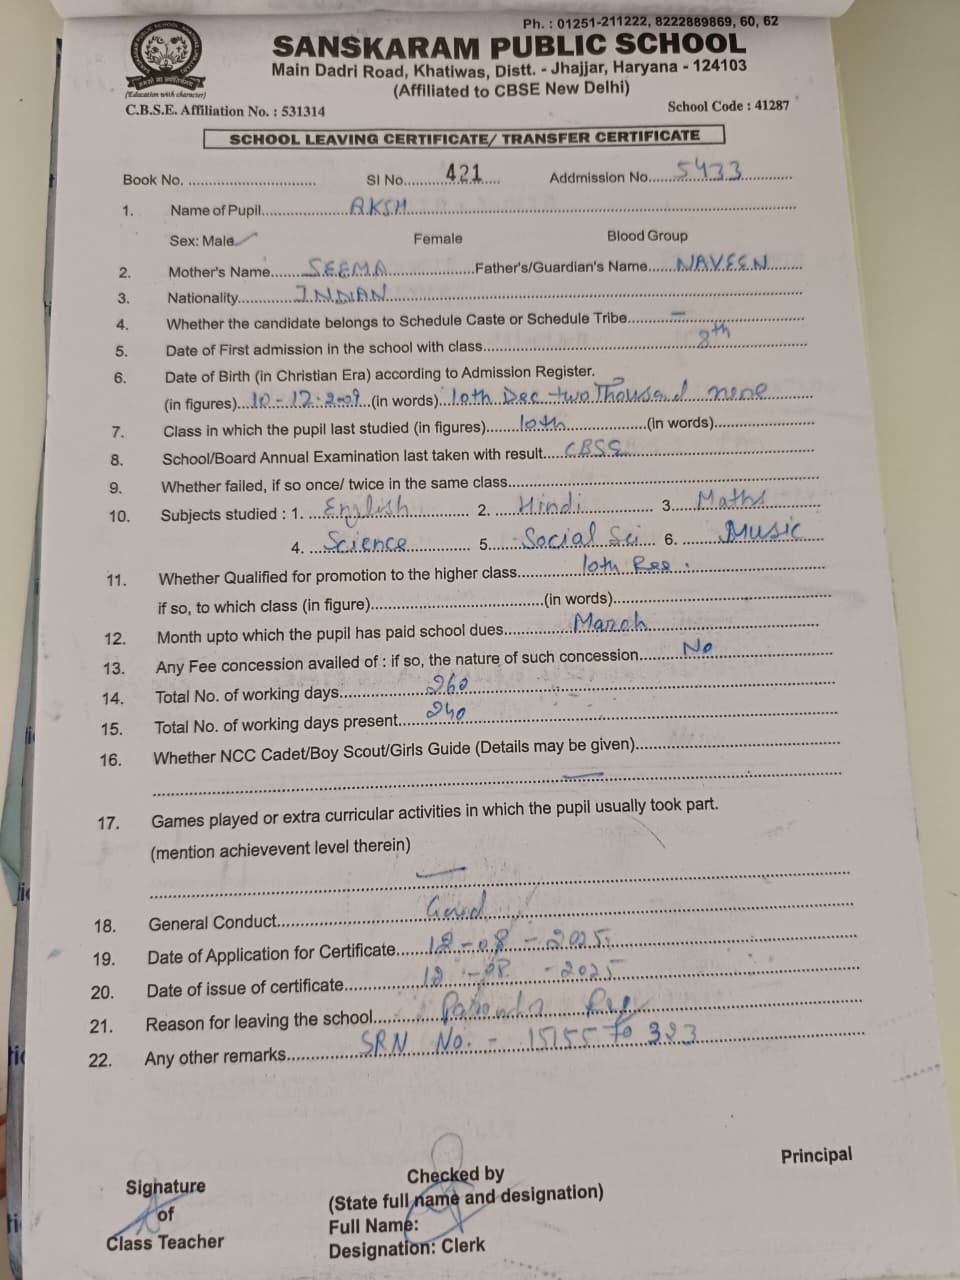 Ph. : 01251-211222, 8222889869, 60, 62
SANSKARAM PUBLIC SCHOOL
Main Dadri Road, Khatiwas, Distt. - Jhajjar, Haryana - 124103
(Affiliated to CBSE New Delhi)
(Education with character)
C.B.S.E. Affiliation No. : 531314 School Code : 41287
SCHOOL LEAVING CERTIFICATE/ TRANSFER CERTIFICATE
Book No. .............................. SI No.....421..... Addmission No......5433............
1. Name of Pupil....................AKSH....................
Sex: Male ✓ Female Blood Group
2. Mother's Name.......SEEMA....................Father's/Guardian's Name......NAVEEN........
3. Nationality.............INDIAN....................
4. Whether the candidate belongs to Schedule Caste or Schedule Tribe..........–..........
5. Date of First admission in the school with class....................8th..........
6. Date of Birth (in Christian Era) according to Admission Register.
(in figures)...10-12-2009...(in words)...10th Dec two Thousand nene..........
7. Class in which the pupil last studied (in figures).......10th....................(in words)....................
8. School/Board Annual Examination last taken with result.....CBSE....................
9. Whether failed, if so once/ twice in the same class....................
10. Subjects studied : 1. ...English.......... 2. ....Hindi.......... 3.....Maths..........
4. ...Science.......... 5......Social Sci.... 6. ......Music.....
11. Whether Qualified for promotion to the higher class.............10th Res...........
if so, to which class (in figure)....................(in words)....................
12. Month upto which the pupil has paid school dues.............March....................
13. Any Fee concession availed of : if so, the nature of such concession.........No..........
14. Total No. of working days....................260....................
15. Total No. of working days present......240....................
16. Whether NCC Cadet/Boy Scout/Girls Guide (Details may be given)....................
....................–....................
17. Games played or extra curricular activities in which the pupil usually took part.
(mention achievevent level therein)
....................–....................
18. General Conduct....................Good....................
19. Date of Application for Certificate......12-08-2025....................
20. Date of issue of certificate...............12-08-2025....................
21. Reason for leaving the school....................
22. Any other remarks...............SRN No. -
Principal
Signature
of
Class Teacher
Checked by
(State full name and designation)
Full Name:
Designation: Clerk